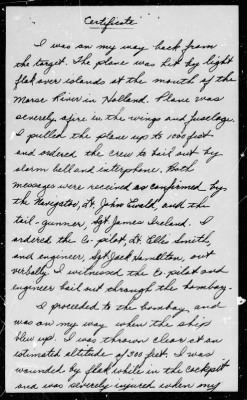 Certificate
I was on my way back from
the target. The plane was hit by light
flak over islands at the mouth of the
Marse River in Holland. Plane was
severely afire in the wings and fuselage.
I pulled the plane up to 1000 feet
and ordered the crew to bail out by
alarm bell and interphone. Both
messages were received as confirmed by
the Navigator, Lt. John Ewald, and the
tail-gunner, Sgt James Ireland. I
ordered the Co-pilot, Lt. Ellis Smith,
and engineer, Sgt Jack Hamilton, out
verbally. I witnessed the Co-pilot and
engineer bail out through the bombay.
I proceeded to the bombay, and
was on my way when the ship
blew up. I was thrown clear at an
estimated altitude of 300 feet. I was
wounded by flak while in the cockpit
and was severely injured when my